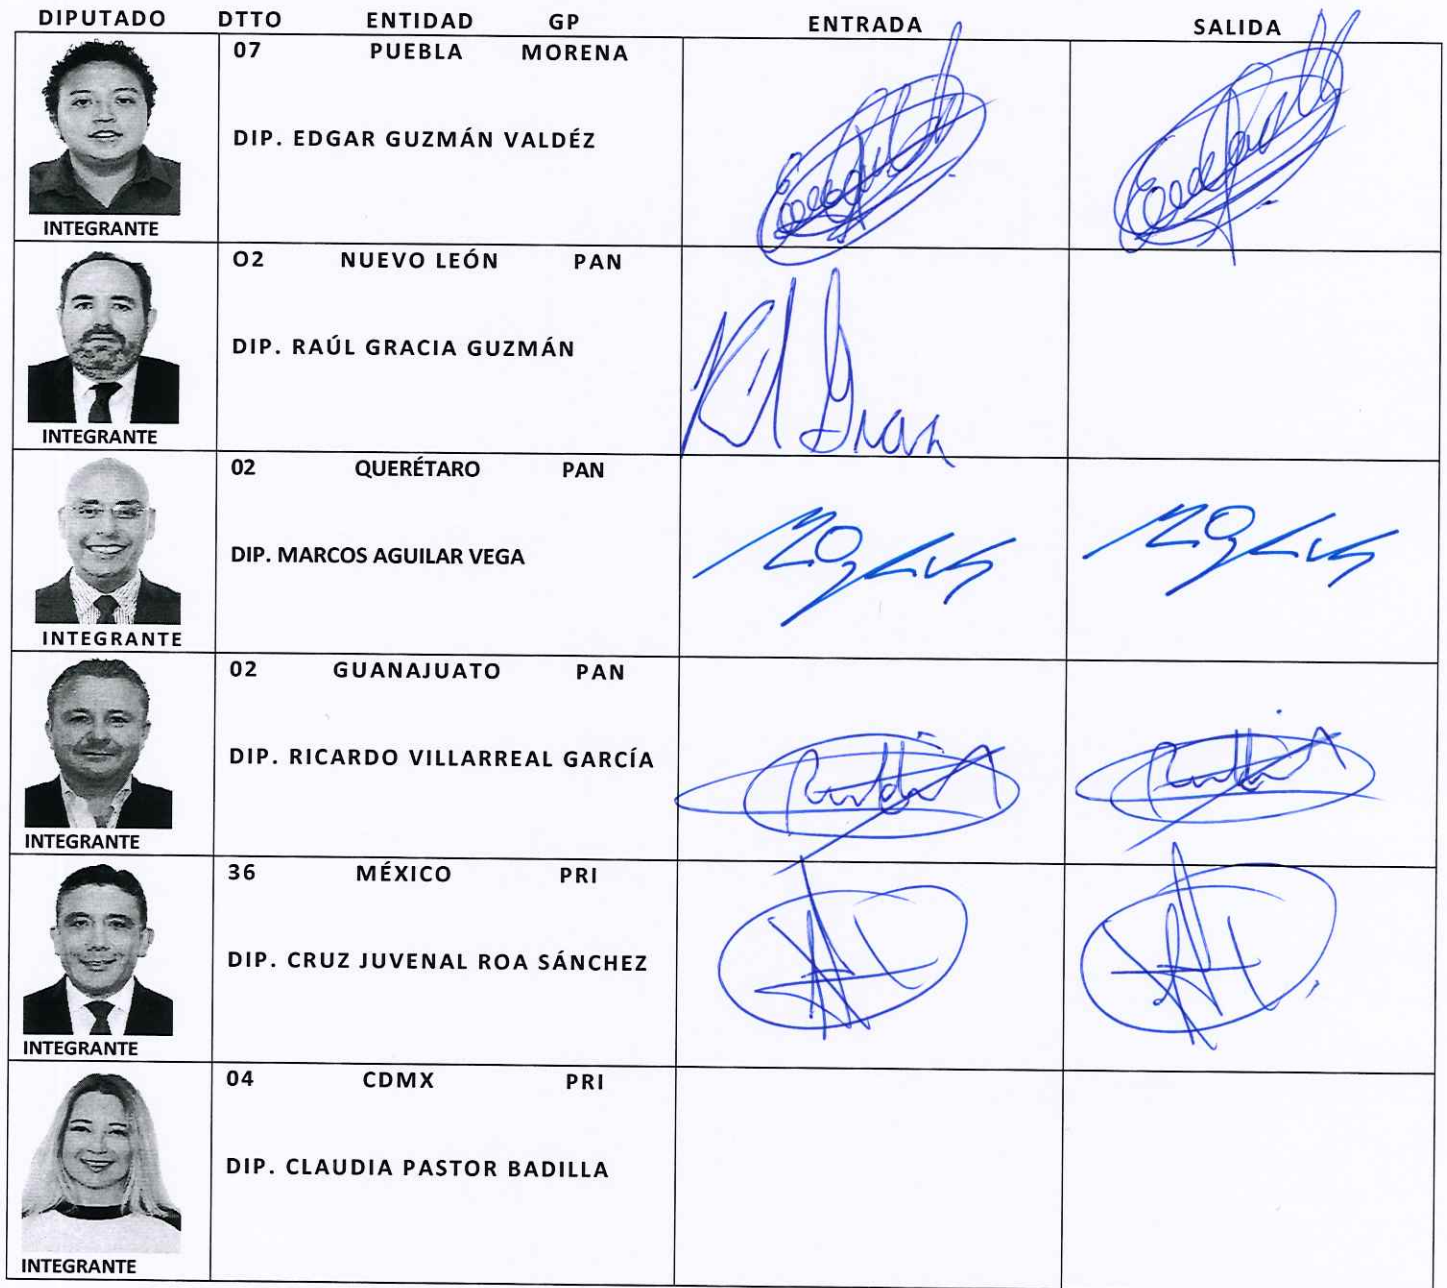 DIPUTADO DTTO ENTIDAD GP ENTRADA SALIDA
07 PUEBLA MORENA
DIP. EDGAR GUZMÁN VALDÉZ
INTEGRANTE
O2 NUEVO LEÓN PAN
DIP. RAÚL GRACIA GUZMÁN
INTEGRANTE
02 QUERÉTARO PAN
DIP. MARCOS AGUILAR VEGA
INTEGRANTE
02 GUANAJUATO PAN
DIP. RICARDO VILLARREAL GARCÍA
INTEGRANTE
36 MÉXICO PRI
DIP. CRUZ JUVENAL ROA SÁNCHEZ
INTEGRANTE
04 CDMX PRI
DIP. CLAUDIA PASTOR BADILLA
INTEGRANTE